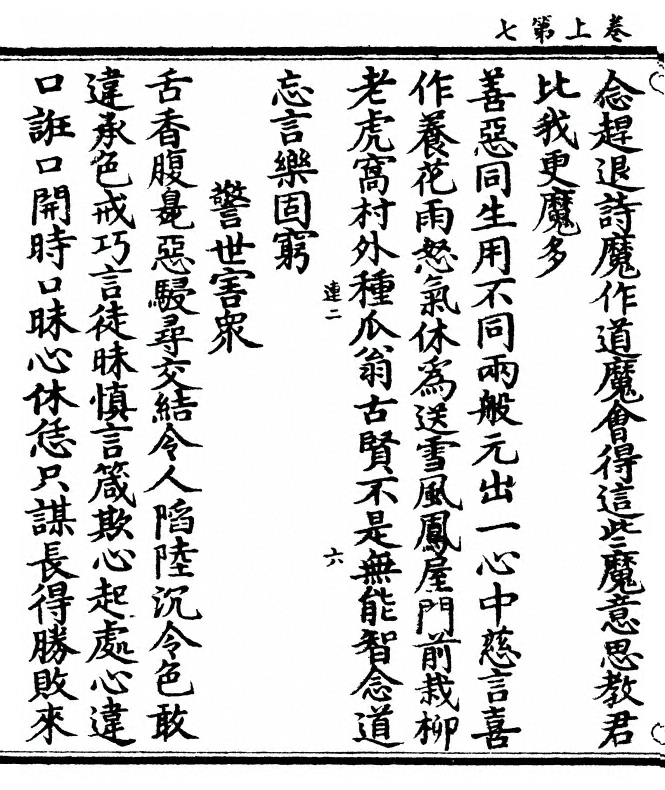 卷上第七
念趕退詩魔作道魔會得這些魔意思教君
比我更魔多
善惡同生用不同兩般元出一心中慈言喜
作養花雨怒氣休為送雪風鳳屋門前栽柳
老虎窩村外種瓜翁古賢不是無能智念道
連二
六
忘言樂固窮
警世害衆
舌香腹毚惡駸尋交結令人陷陸沉令色敢
違承色戒巧言徒昧慎言箴欺心起處心違
口誑口開時口昧心休恁只謀長得勝敗來